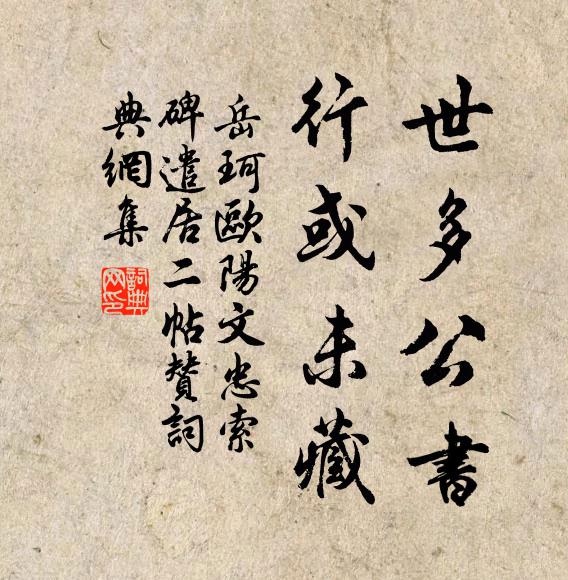 世多公書
行或未藏
岳珂歐陽文忠索
碑遣居二帖贊詞
典網集
詞典網印